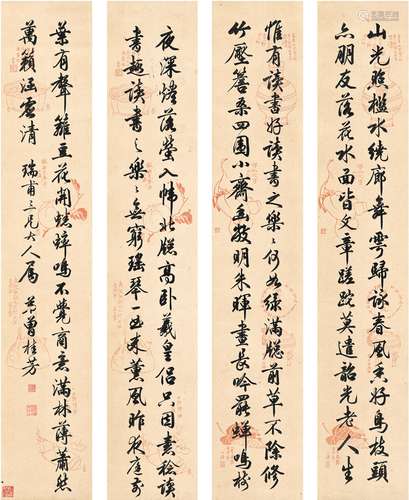 山光照檻水繞廊舞雩歸詠春風香好鳥枝頭
亦朋友落花水面皆文章蹉跎莫遣韶光老人生
惟有讀書好讀書之樂〻何如綠滿牕前草不除修
竹壓簷桑四圍小齋幽敞明朱暉晝長吟罷蟬鳴樹
夜深燼落螢入幃北牕高卧羲皇侶只因素稔讀
書趣讀書之樂〻無窮瑤琴一曲来薰風昨夜庭前
葉有聲籬豆花開蟋蟀鳴不覺商意滿林薄蕭然
萬籟涵虛清 瑞甫三兄大人屬 弟曾桂芳